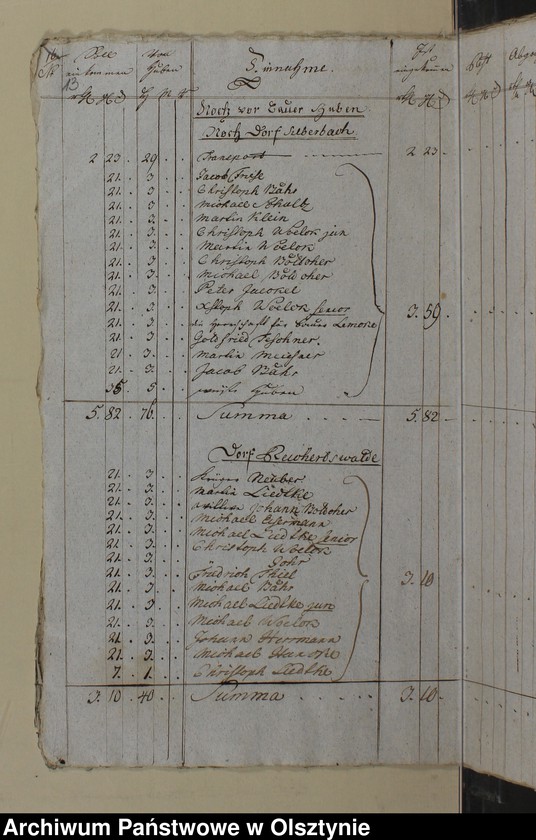 16
13
Soll
einkommen
von
Huben
Einnahme.
Ist
eingekommen
Rest
Noch vor Bauer Huben
Noch Dorf Silberbach
2 23. 29. Transport 2 23.
21. 3. Jacob
21. 3. Christoph Bähr
21. 3. Michael Schultz
21. 3. Martin Klein
21. 3. Christoph Woelck jun
21. 3. Martin Woelck
21. 3. Christoph Böttcher
21. 3. Michael Böttcher
21. 3. Peter Jaeckel
21. 3. Xstoph Woelck senior 3. 59.
21. 3. die Herrschaft für Bauer Lemcke
21. 3. Gottfried
21. 3. Martin Meissner
21. 3. Jacob Bähr
35 5 wüste Huben
5. 82. 76. Summa 5. 82.
Dorf Reichertswalde
21. 3. Krüger Neuber
21. 3. Martin Liedtke
21. 3. Johann Böttcher
21. 3. Michael
21. 3. Michael Liedtke senior
21. 3. Christoph Woelck
21. 3. Gohr
21. 3. Friedrich Thiel 3. 10
21. 3. Michael Bähr
21. 3. Michael Liedtke jun
21. 3. Michael Woelck
21. 3. Johann Herrmann
21. 3. Michael
7. 1. Christoph Liedtke
3. 10 40 Summa 3. 10.
Archiwum Państwowe w Olsztynie